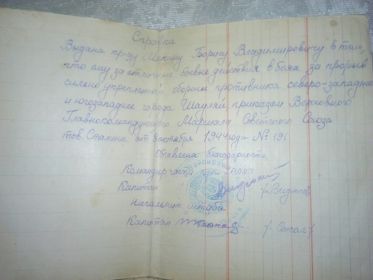 Справка
Выдана пр-ду Макову Борису Владимировичу в том,
что ему за отличные боевые действия в боях за прорыв
сильно укрепленной обороны противника северо-западнее
и югозападнее города Шауляй приказом Верховного
Главнокомандующего Маршала Советского Союза
тов. Сталина от 8 октября 1944 года № 191
объявлена благодарность
Командир
Капитан
Начальник штаба
Капитан